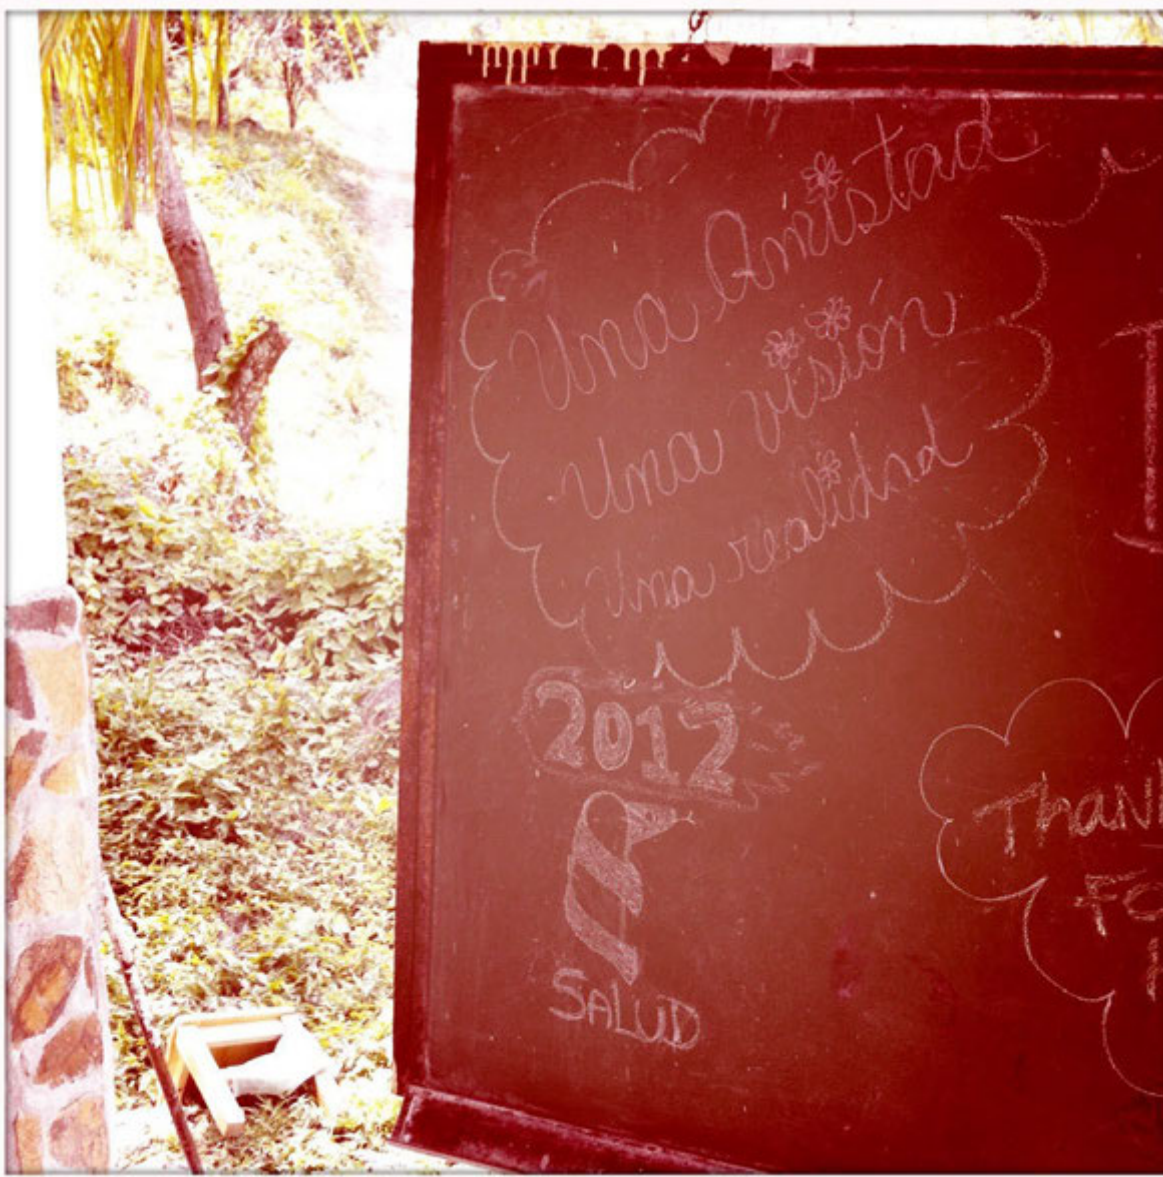 Una Amistad
Una visión
Una realidad
2012
SALUD